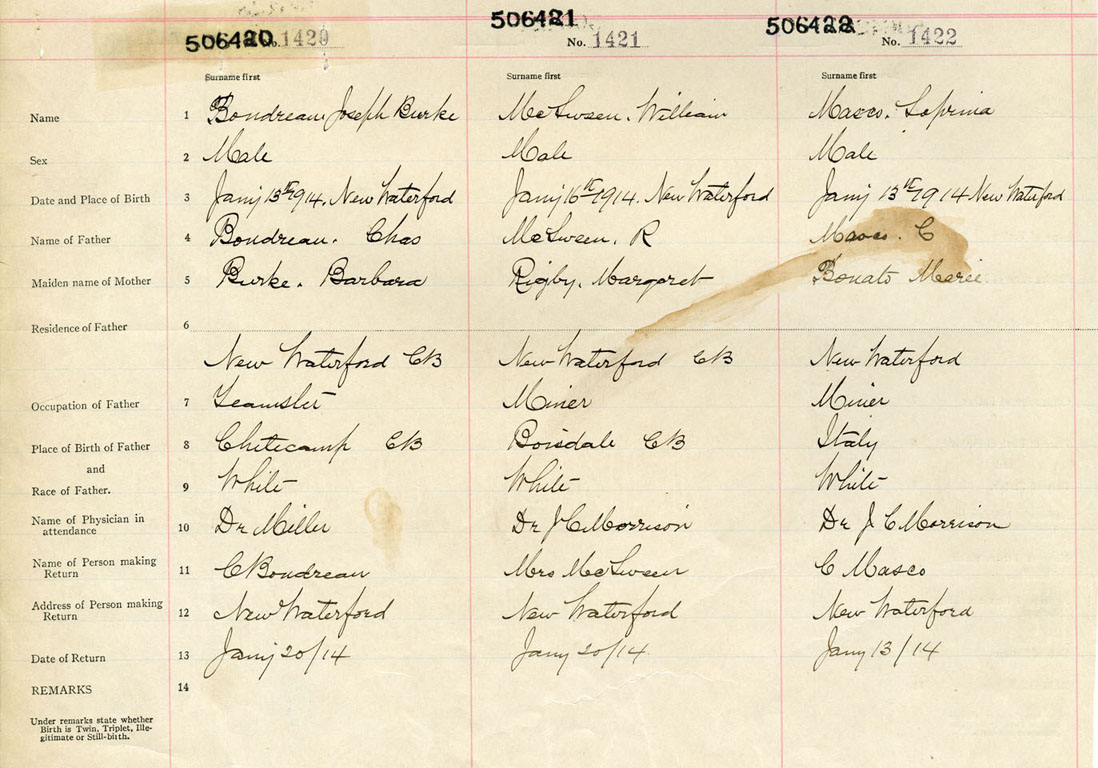 506420 No. 1420 506421 No. 1421 506422 No. 1422
Surname first Surname first Surname first
Name 1 Boudreau, Joseph Burke McSween, William Masco,
Sex 2 Male Male Male
Date and Place of Birth 3 Jany 13th 1914. New Waterford Jany 16th 1914. New Waterford Jany 13th 1914 New Waterford
Name of Father 4 Boudreau. Chas McSween, R Masco. C
Maiden name of Mother 5 Burke. Barbara Rigby, Margaret Bonato Marie
Residence of Father 6
New Waterford CB New Waterford CB New Waterford
Occupation of Father 7 Teamster Miner Miner
Place of Birth of Father 8 Cheticamp CB Boisdale CB Italy
and
Race of Father. 9 White White White
Name of Physician in attendance 10 Dr Miller Dr J C Morrison Dr J C Morrison
Name of Person making Return 11 C Boudreau Mrs McSween C Masco
Address of Person making Return 12 New Waterford New Waterford New Waterford
Date of Return 13 Jany 20/14 Jany 20/14 Jany 13/14
REMARKS 14
Under remarks state whether
Birth is Twin, Triplet, Ille-
gitimate or Still-birth.